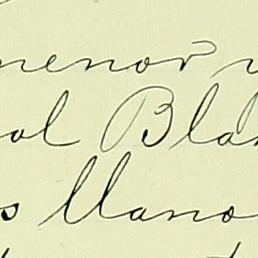 menor
ol Bla
s llano